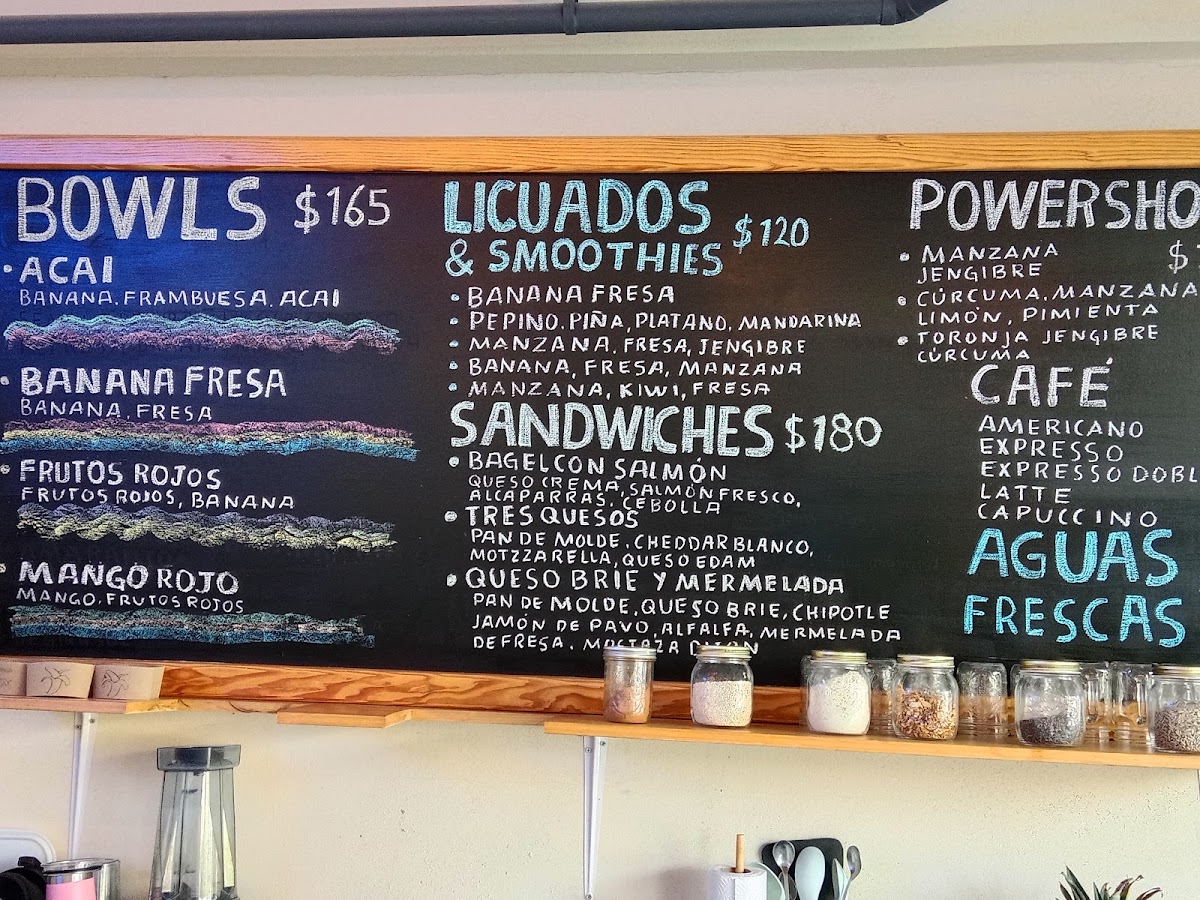 BOWLS $165
• ACAI
BANANA. FRAMBUESA. ACAI
• BANANA FRESA
BANANA, FRESA
• FRUTOS ROJOS
FRUTOS ROJOS, BANANA
• MANGO ROJO
MANGO. FRUTOS ROJOS
LICUADOS
& SMOOTHIES $120
• BANANA FRESA
• PEPINO. PIÑA, PLATANO, MANDARINA
• MANZANA. FRESA, JENGIBRE
• BANANA, FRESA, MANZANA
• MANZANA, KIWI, FRESA
SANDWICHES $180
• BAGEL CON SALMÓN
QUESO CREMA, SALMÓN FRESCO,
ALCAPARRAS, CEBOLLA
• TRES QUESOS
PAN DE MOLDE. CHEDDAR BLANCO,
MOTZZARELLA, QUESO EDAM
• QUESO BRIE Y MERMELADA
PAN DE MOLDE, QUESO BRIE, CHIPOTLE
JAMÓN DE PAVO, ALFALFA, MERMELADA
DE FRESA. MOSTAZA
POWERSHO
• MANZANA $
JENGIBRE
• CÚRCUMA. MANZANA
LIMÓN, PIMIENTA
• TORONJA JENGIBRE
CÚRCUMA
CAFÉ
AMERICANO
EXPRESSO
EXPRESSO DOBL
LATTE
CAPUCCINO
AGUAS
FRESCAS